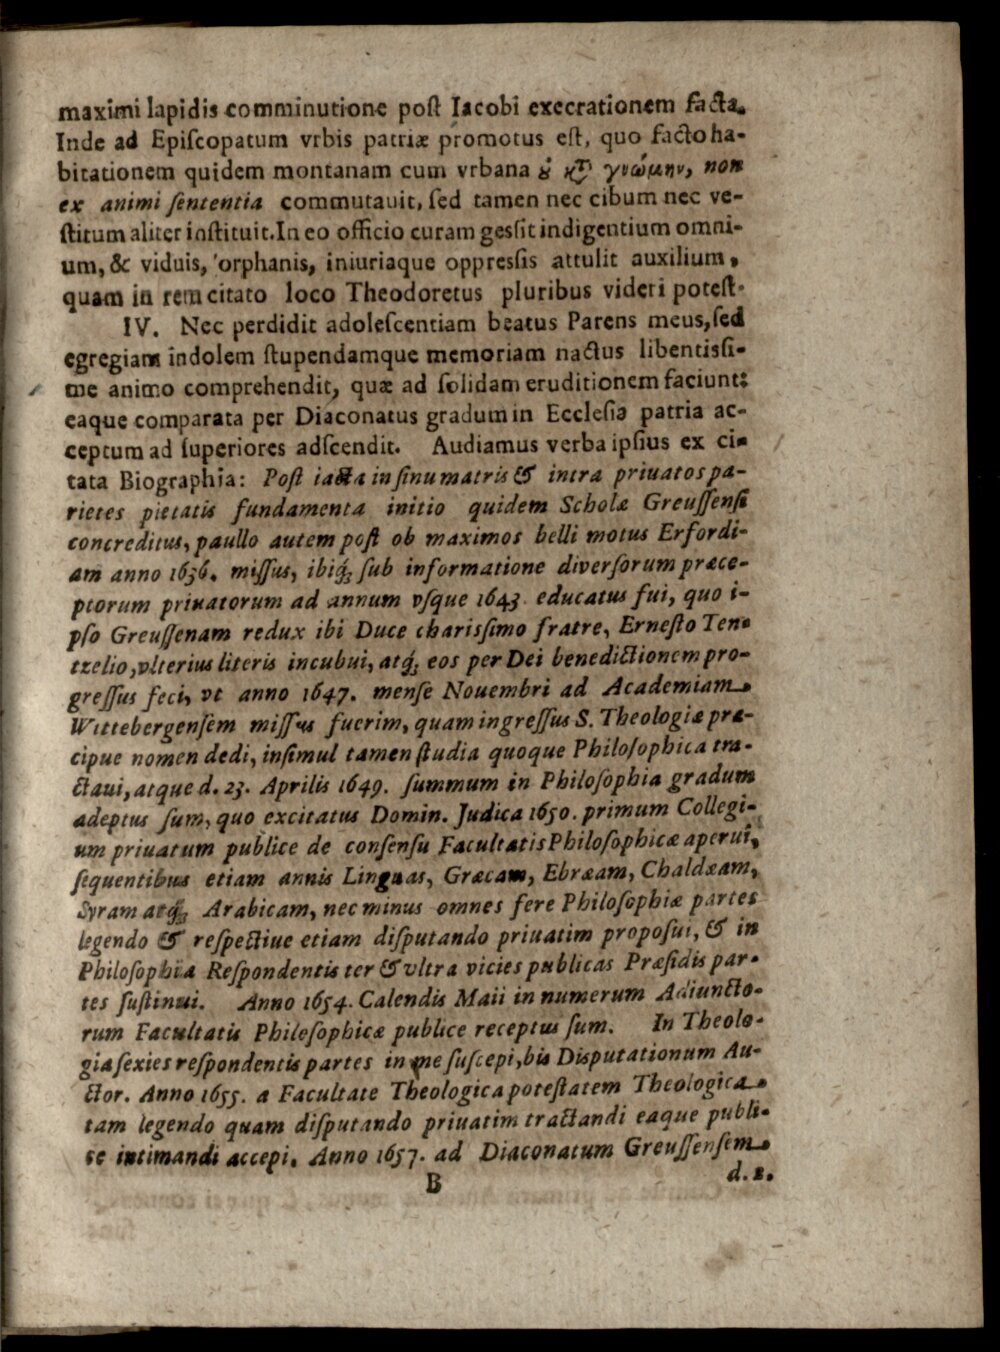 maximi lapidis comminutione poſt Iacobi execrationem facta.
Inde ad Epiſcopatum vrbis patriæ promotus eſt, quo facto ha-
bitationem quidem montanam cum vrbana ȣ̓ κτ̀ γνώμην, non
ex animi ſententia commutauit, ſed tamen nec cibum nec ve-
ſtitum aliter inſtituit. In eo officio curam geſſit indigentium omni-
um, & viduis, orphanis, iniuriaque oppreſſis attulit auxilium,
quam in rem citato loco Theodoretus pluribus videri poteſt.
IV. Nec perdidit adoleſcentiam beatus Parens meus, ſed
egregiam indolem ſtupendamque memoriam nactus libentiſſi-
me animo comprehendit, quæ ad ſolidam eruditionem faciunt:
eaque comparata per Diaconatus gradum in Eccleſia patria ac-
ceptum ad ſuperiores adſcendit. Audiamus verba ipſius ex ci-
tata Biographia: Poſt iacta in ſinu matris & intra priuatos pa-
rietes pietatis fundamenta initio quidem Scholæ Greuſſenſi
concreditus, paullo autem poſt ob maximos belli motus Erfordi-
am anno 1636. miſſus, ibiq; ſub informatione diverſorum præce-
ptorum priuatorum ad annum vſque 1643. educatus fui, quo i-
pſo Greuſſenam redux ibi Duce chariſſimo fratre, Erneſto Ten-
tzelio, vlterius literis incubui, atq; eos per Dei benedictionem pro-
greſſus feci, vt anno 1647. menſe Nouembri ad Academiam
Wittebergenſem miſſus fuerim, quam ingreſſus S. Theologiæ præ-
cipue nomen dedi, inſimul tamen ſtudia quoque Philoſophica tra-
ctaui, atque d. 23. Aprilis 1649. ſummum in Philoſophia gradum
adeptus ſum, quo excitatus Domin. Judica 1650. primum Collegi-
um priuatum publice de conſenſu Facultatis Philoſophicæ aperui,
ſequentibus etiam annis Linguas, Græcam, Ebræam, Chaldæam,
Syram atq; Arabicam, nec minus omnes fere Philoſophiæ partes
legendo & reſpectiue etiam diſputando priuatim propoſui, & in
Philoſophia Reſpondentis ter & vltra vicies publicas Præſidis par-
tes ſuſtinui. Anno 1654. Calendis Maii in numerum Adiuncto-
rum Facultatis Philoſophicæ publice receptus ſum. In Theolo-
gia ſexies reſpondentis partes in me ſuſcepi, bis Diſputationum Au-
ctor. Anno 1655. a Facultate Theologica poteſtatem Theologica
tam legendo quam diſputando priuatim tractandi eaque publi-
ce intimandi accepi. Anno 1657. ad Diaconatum Greuſſenſem
B d. 2.